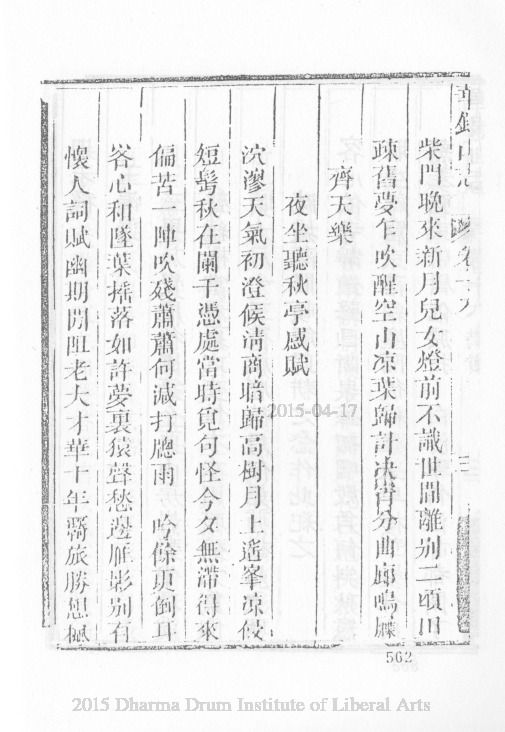 華銀山志 卷十六
柴門晚來新月兒女燈前不識世間離別二頃田
疎舊夢乍吹醒空山凉葉歸計决宵分曲廊鳴屧
齊天樂
夜坐聽秋亭感賦
泬漻天氣初澄候清商暗歸高樹月上遙峯凉侵
短髩秋在闌干憑處當時覓句怪今夕無滯得來
偏苦一陣吹殘蕭蕭何減打牕雨 吟餘更倒耳
客心和墜葉搖落如許夢裏猿聲愁邊雁影別有
懷人詞賦幽期閒阻老大才華十年羇旅勝思
2015-04-17
562
2015 Dharma Drum Institute of Liberal Arts